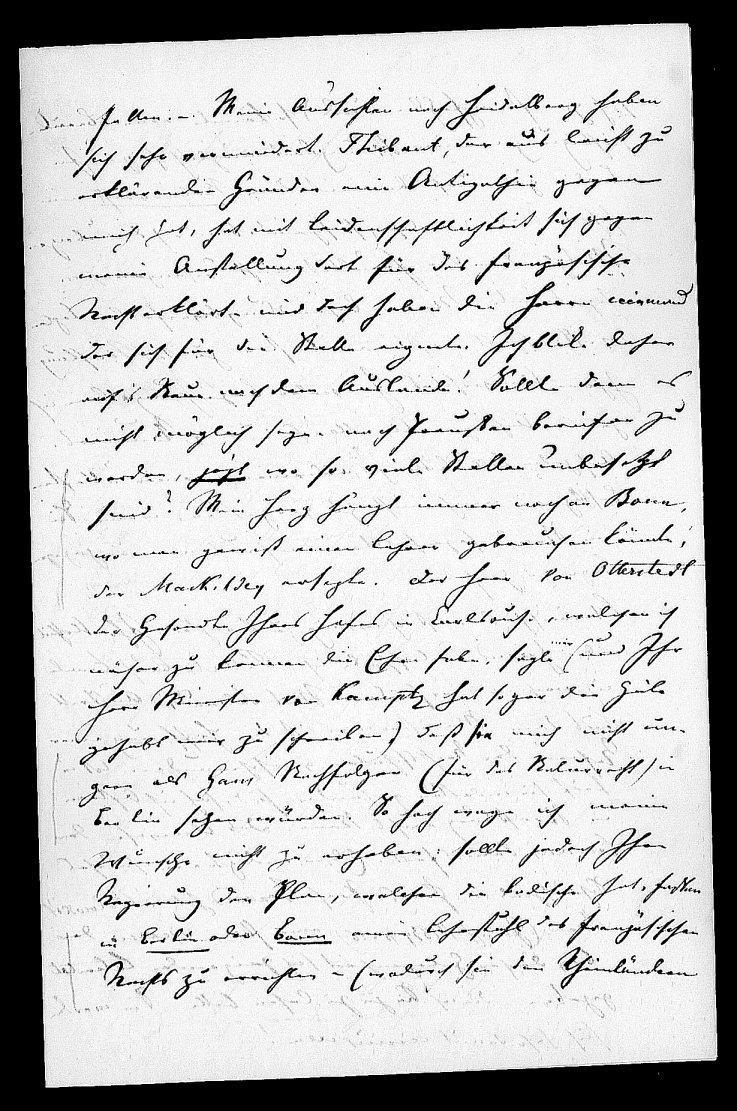 fallen. – Meine Aussichten nach Heidelberg haben
sich sehr vermindert. Thibaut, der aus leicht zu
erklärenden Gründen eine Antipathie gegen
mich hat, hat mit Leidenschaftlichkeit sich gegen
meine Anstellung dort für das französische
Recht erklärt. und doch haben die Herrn niemand
der sich für die Stelle eignete. Ich blicke daher
auf's Neue nach dem Auslande! Sollte denn es
nicht möglich seyn nach Preußen berufen zu
werden, jetzt wo so viele Stellen unbesetzt
sind? Mein Herz hängt immer noch an Bonn,
wo man gewiß einen Lehrer gebrauchen könnte,
der Mackeldey ersetzte. Der Herr von Otterstedt
der Gesandte Ihres Hofes in Carlsruhe, welchen ich
näher zu kennen die Ehre habe, sagte mir (und Ihr
Herr Minister von Kamptz hat sogar die Güte
gehabt mir zu schreiben) daß sie mich nicht un-
gern als Gans Nachfolger (für das Naturrecht) in
Berlin sehen würden. So hoch wage ich meine
Wünsche nicht zu erheben: sollte jedoch Ihre
Regierung den Plan, welchen die badische hat, fassen
in Berlin oder Bonn einen Lehrstuhl des französischen
Rechts zu errichten – (wodurch sie den Rheinländern